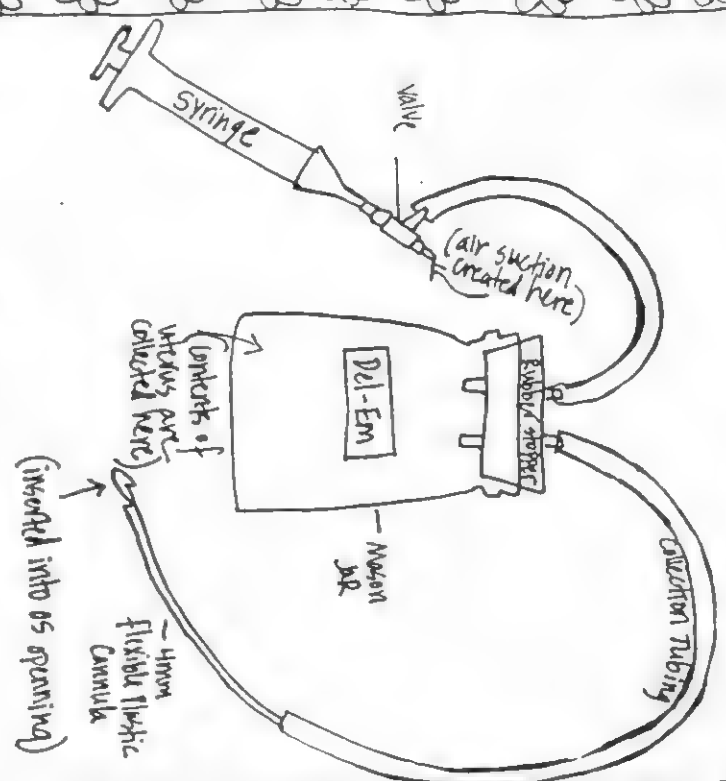 Syringe
valve
(air suction
created here)
Rubber stopper
Del-Em
(contents of
uterus are
collected here)
- Mason
jar
collection Tubing
~ 4mm
flexible Plastic
Cannula
(inserted into os openning)